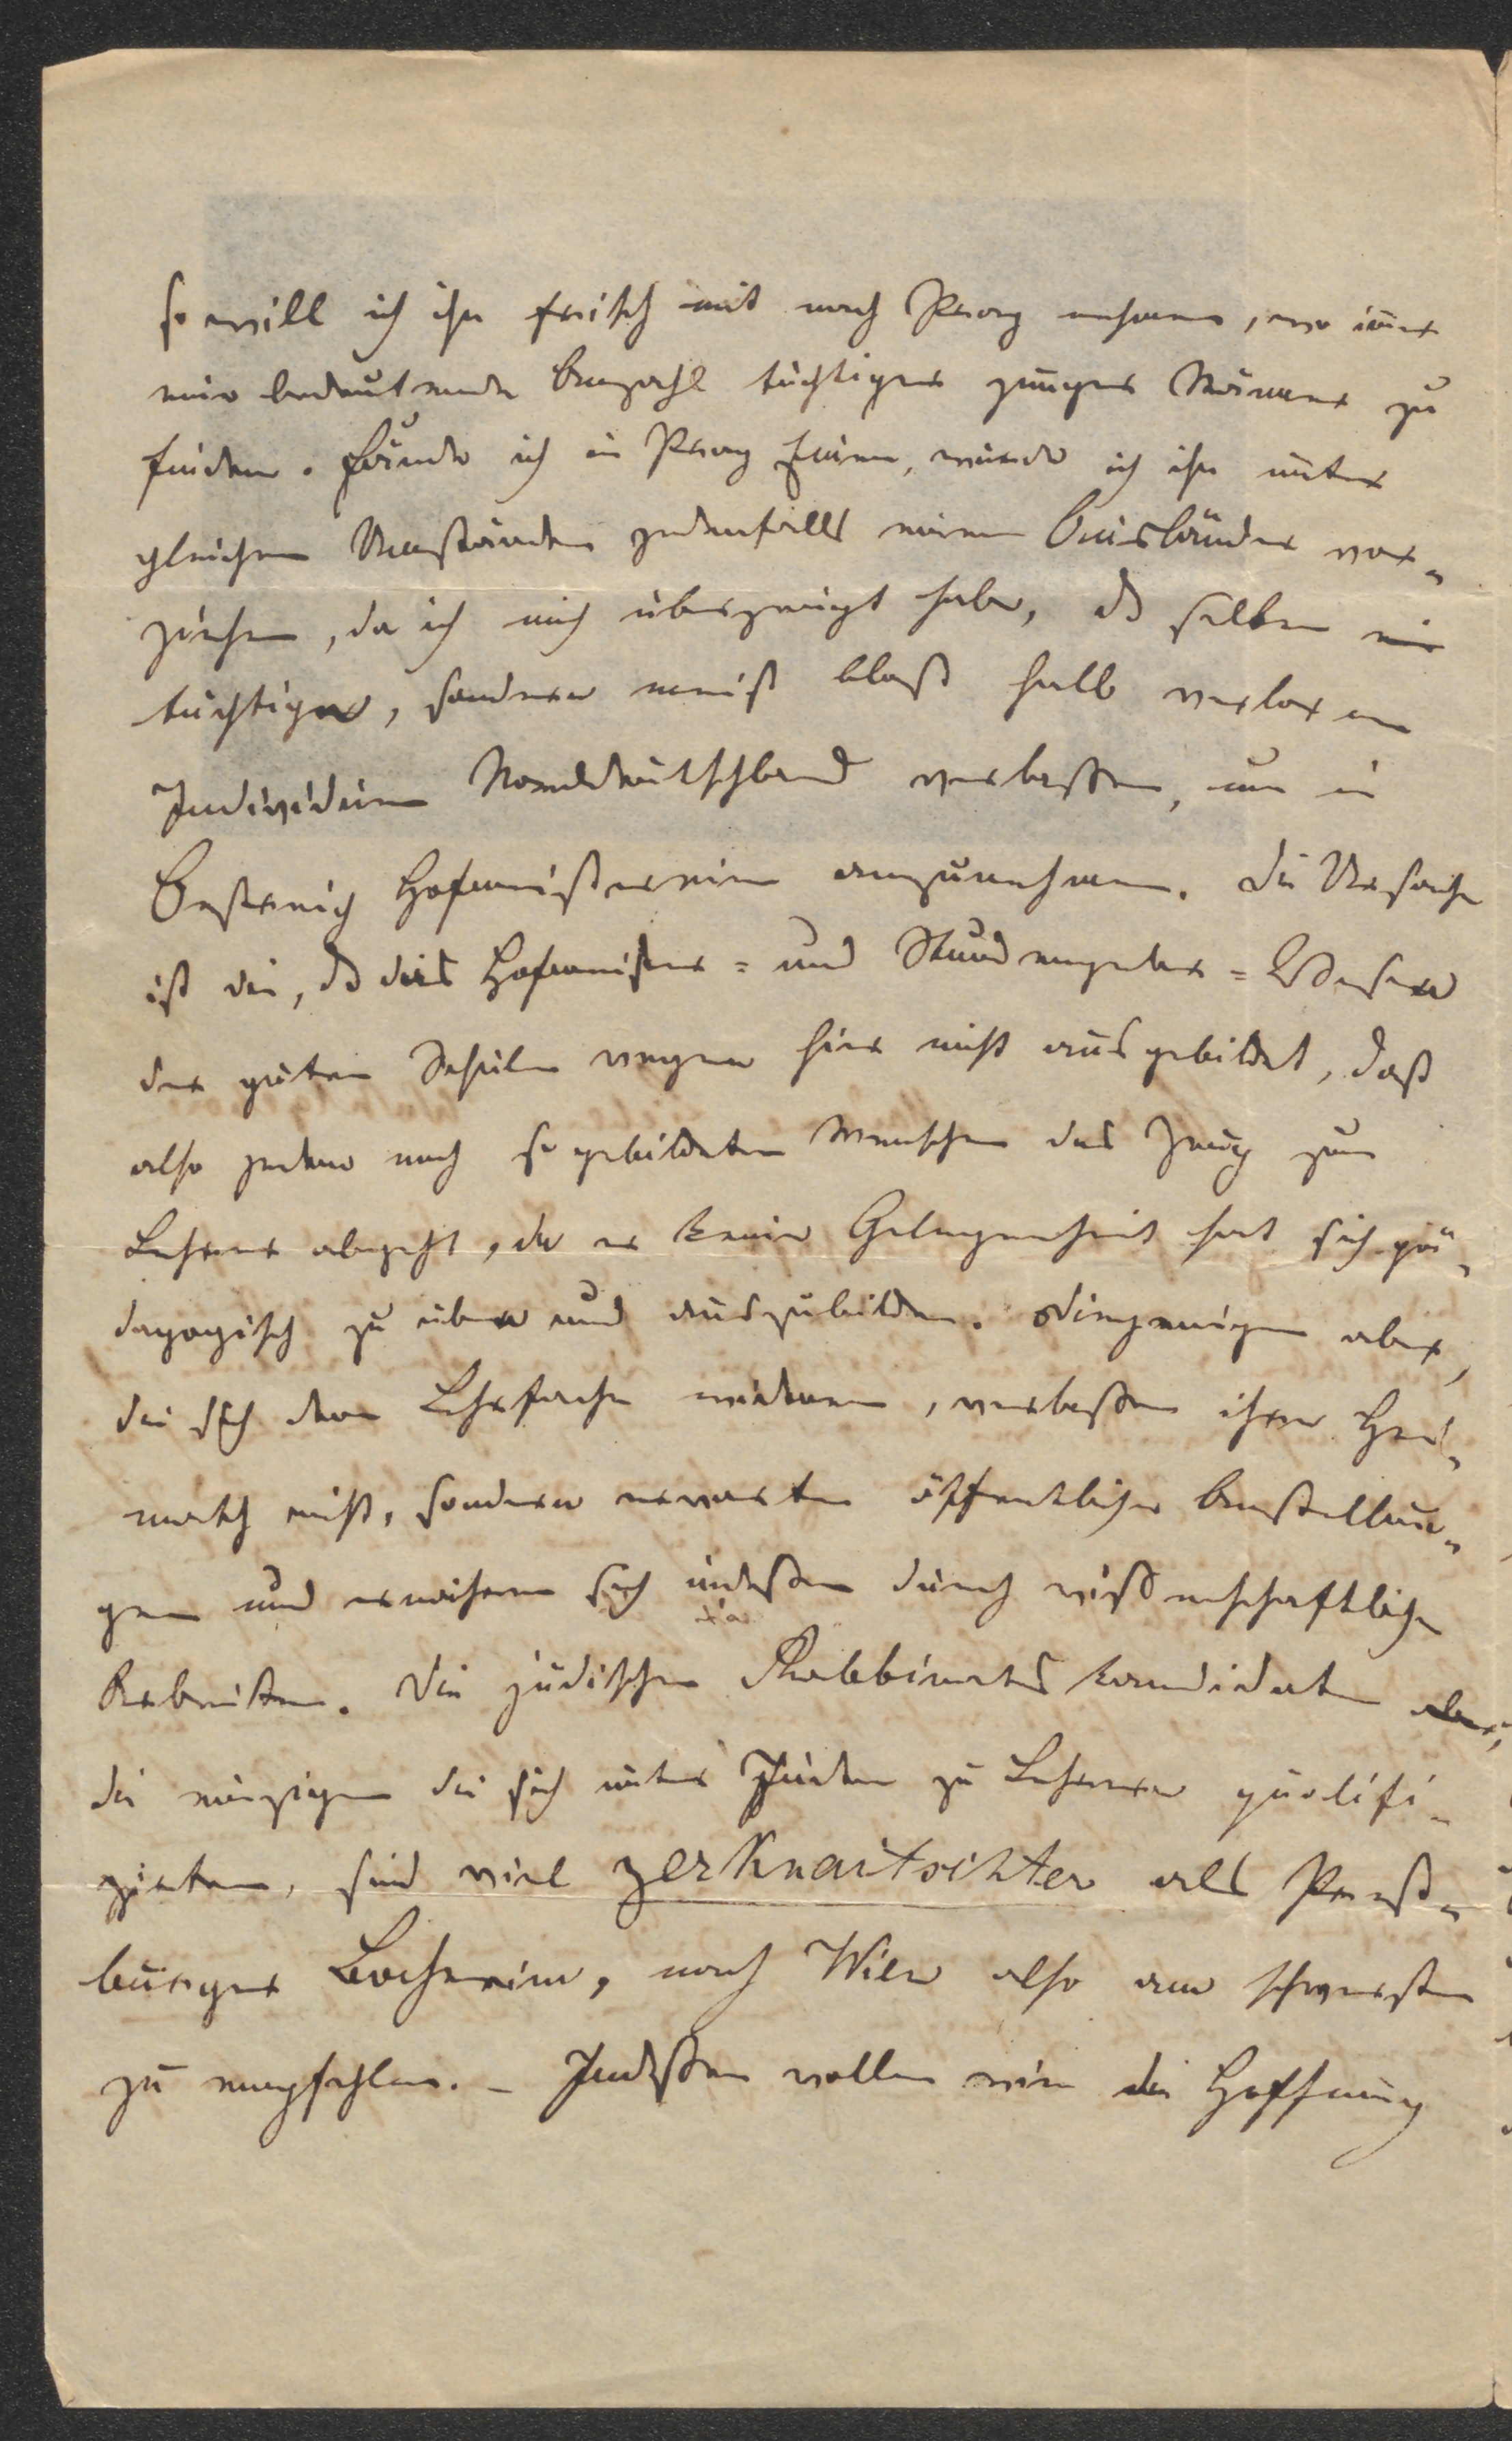 so will ich ihn frisch mit nach Prag nehmen, wo immer
eine bedeutende Anzahl tüchtiger junger Männer zu
finden. Fände ich in Prag Einen, würde ich ihn unter
gleichen Umständen jedenfalls einem Ausländer vor-
ziehen, da ich mich überzeugt habe, dß selten ein
tüchtiger, sondern meist bloß halb verlorene
Individuen Norddeutschland verlassen, um in
Oestreich Hofmeistereien anzunehmen. Die Ursache
ist die, dß das Hofmeister- und Stundengeber-Wesen
der guten Schulen wegen hier nicht ausgebildet, daß
also jedem noch so gebildeten Menschen das Zeug zum
Lehrer abgeht, da er keine Gelegenheit hat sich pä-
dagogisch zu üben und auszubilden. Diejenigen aber,
die sich dem Lehrfache widmen, verlassen ihre Hei-
math nicht, sondern erwarten öffentliche Anstellun-
gen und ernähren sich indeßen durch wißenschaftliche
Arbeiten. Die jüdischen Rabbinatskandidaten aber,
die einzigen die sich unter Juden zu Lehrern qualifi-
zirten, sind viel zerknaitschter als Preß-
burger Bocherim, nach Wien also am schwersten
zu empfehlen. – Indeßen wollen wir die Hoffnung